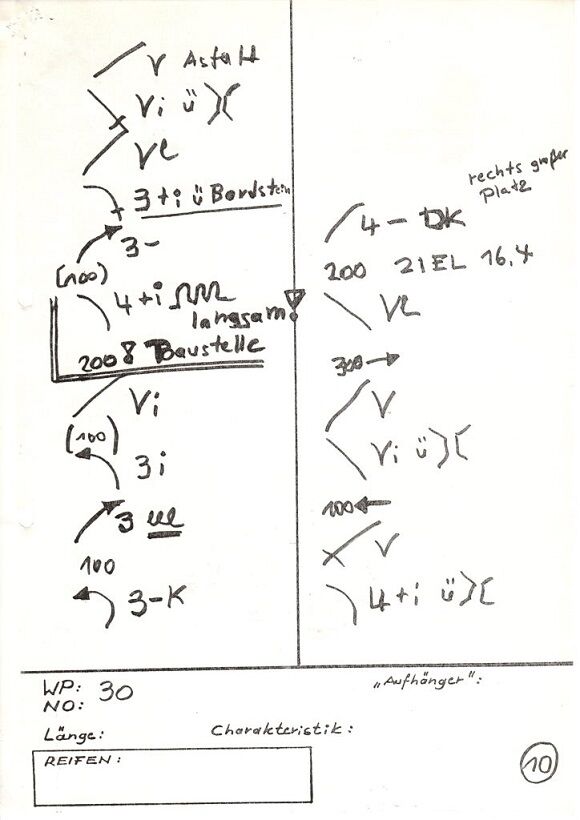 V Asfalt
Vi ü )(
Vl
3+i ü Bordstein
3-
(100)
4+i
langsam
200 8 Baustelle
Vi
(100)
3i
3
100
3-K
rechts großer
Platz
4 - DK
200 21EL 16.4
Vl
300 →
V
Vi ü )(
100 ←
V
4+i ü )(
WP: 30
NO:
„Aufhänger“:
Länge:
Charakteristik:
REIFEN:
10